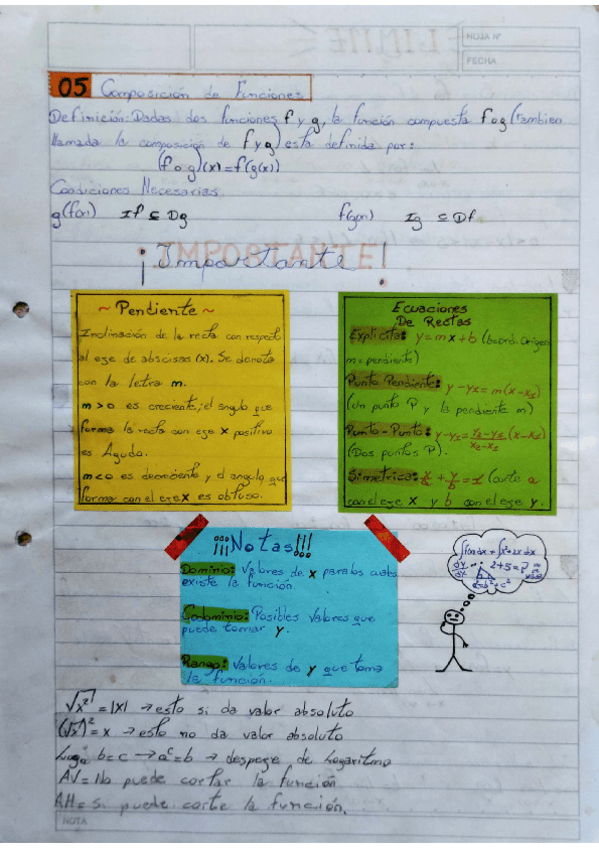 HOJA Nº
FECHA
05 Composición de Funciones
Definición: Dadas dos funciones f y g, la función compuesta f o g (tambien
llamada la composición de f y g) esta definida por:
(f o g)(x) = f(g(x))
Condiciones Necesarias
g(f(x)) If ⊆ Dg f(g(x)) Ig ⊆ Df
¡Importante!
~ Pendiente ~
Inclinación de la recta con respecto
al eje de abscisas (x). Se denota
con la letra m.
m > 0 es creciente, el angulo que
forma la recta con eje x positivo
es Agudo.
m < 0 es decreciente y el angulo que
forma con el eje x es obtuso.
Ecuaciones
De Rectas
Explicita: y = mx + b (b=cord. Origen
m = pendiente)
Punto Pendiente: y - y1 = m(x - x1)
(Un punto P y la pendiente m)
Punto - Punto: y - y1 = y2 - y1 / x2 - x1 (x - x1)
(Dos puntos P).
Simetrica: x/a + y/b = 1 (corte a
con el eje x y b con el eje y.
¡¡¡Notas!!!
Dominio: Valores de x para los cuales
existe la función.
Codominio: Posibles Valores que
puede tomar y.
Rango: Valores de y que toma
la función.
2+5=?
√x² = |x| → esto si da valor absoluto
(√x)² = x → esto no da valor absoluto
Log a b = c → a^c = b → despeje de logaritmo
AV = No puede cortar la función
AH = Si puede corte la función.
NOTA